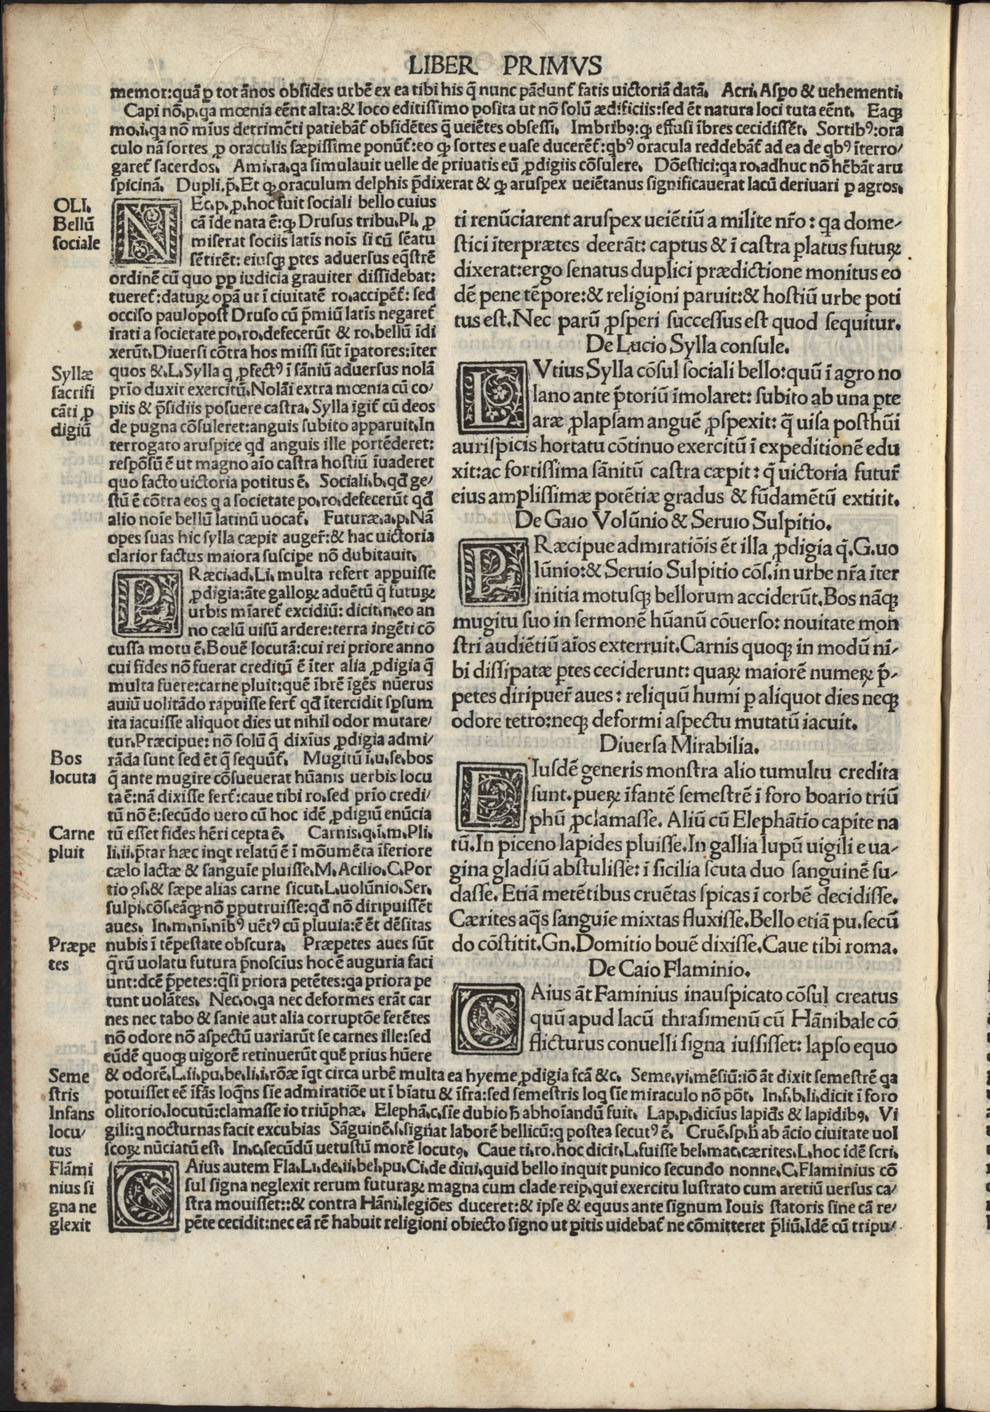 LIBER PRIMVS
memor:quã p̱ tot ãnos obsides urbẽ ex ea tibi his q̃ nunc pãdunt̃ fatis uictoriã datã. Acri. Aspo & uehementi.
Capi nõ.p.qa mœnia eẽnt alta:& loco editissimo posita ut nõ solũ ædificiis:sed ẽt natura loci tuta eẽnt. Eaqꝫ
mo.i.qa nõ mĩus detrimẽti patiebat̃ obsidẽtes q̃ ueiẽtes obsessi. Imbribꝰ:qꝫ effusi ĩbres cecidissẽt. Sortibꝰ:ora
culo nã sortes p̱ oraculis sæpissime ponũt̃:eo qꝫ sortes e uase ducerẽt̃:qbꝰ oracula reddebãt̃ ad ea de qbꝰ ĩterro/
garet̃ sacerdos. Ami.ra.qa simulauit uelle de priuatis eũ ꝓdigiis cõsulere. Dõestici:qa ro.adhuc nõ hẽbãt aru
spicinã. Dupli.p̃.Et qꝫ oraculum delphis p̃dixerat & qꝫ aruspex ueiẽtanus significauerat lacũ deriuari p̱ agros.
OLI.
Bellũ
sociale
NEc.p.p.hoc fuit sociali bello cuius
cã ĩde nata ẽ:qꝫ Drusus tribu.Pl.ꝓ
miserat sociis latĩs nois si cũ sẽatu
sẽtirẽt: eiusqꝫ p̱tes aduersus eq̃strẽ
ordinẽ cũ quo ꝓp iudicia grauiter dissidebat:
tueret̃:daturꝫ opã ut ĩ ciuitatẽ ro.accipet̃: sed
occiso paulopost Druso cũ p̃miũ latĩs negaret̃
irati a societate po.ro.defecerũt & ro.bellũ ĩdi
xerũt.Diuersi cõtra hos missi sũt ĩpatores:ĩter
quos &.L.Sylla q ꝓfectꝰ ĩ sãniũ aduersus nolã
Syllæ
sacrifi
cãti ꝓ
digiũ
prĩo duxit exercitũ.Nolãĩ extra mœnia cũ co/
piis & p̃sidiis posuere castra. Sylla igit̃ cũ deos
de pugna cõsuleret:anguis subito apparuit.In
terrogato aruspice qd anguis ille portẽderet:
respõsũ ẽ ut magno aĩo castra hostiũ ĩuaderet
quo facto uictoria potitus ẽ. Sociali.b.qd ge/
stũ ẽ cõtra eos q a societate po.ro.defecerũt qd
alio noĩe bellũ latinũ uocat̃. Futuræ.a.p.Nã
opes suas hic sylla cæpit auger̃:& hac uictoria
clarior factus maiora suscipe nõ dubitauit.
PRæci.ad.Li. multa refert appuisse
ꝓdigia:ãte gallorꝫ aduẽtũ q̃ futurꝫ
urbis mĩaret̃ excidiũ: dicit.n.eo an
no cælũ uisũ ardere:terra ingẽti cõ
cussa motu ẽ.Bouẽ locutã:cui rei priore anno
cui fides nõ fuerat creditũ ẽ ĩter alia ꝓdigia q̃
multa fuere:carne pluit:quẽ ĩbrẽ ĩgẽs nũerus
auiũ uolitãdo rapuisse fert̃ qd ĩtercidit spsum
ita iacuisse aliquot dies ut nihil odor mutare/
tur.Præcipue: nõ solũ q̃ dixĩus ꝓdigia admi/
Bos
locuta
rãda sunt sed ẽt q̃ sequũt̃. Mugitũ ĩ.u.se.bos
q̃ ante mugire cõsueuerat hũanis uerbis locu
ta ẽ:nã dixisse fert̃:caue tibi ro.sed prĩo credi/
tũ nõ ẽ:secũdo uero cũ hoc idẽ ꝓdigiũ enũcia
Carne
pluit
tũ esset fides hẽri cepta ẽ. Carnis.q.i.m.Pli.
li.ii.p̃tar hæc inqt relatũ ẽ ĩ mõumẽta ĩferiore
cælo lactæ & sanguĩe pluisse.M.Acilio.C.Por
tio ꝯs.& sæpe alias carne sicut.L.uolũnio.Ser.
sulpi.cõs.eãqꝫ nõ p̱putruisse:qd nõ diripuissẽt
aues. In.m.ni.nĩbꝰ uẽtꝰ cũ pluuia:ẽ ẽt dẽsitas
Præpe
tes
nubis ĩ tẽpestate obscura. Præpetes aues sũt
q̃rũ uolatu futura p̃noscĩus hoc ẽ auguria faci
unt:dcẽ p̃petes:q̃si priora petẽtes:qa priora pe
tunt uolãtes. Nec.o.qa nec deformes erãt car
nes nec tabo & sanie aut alia corruptõe ferẽtes
nõ odore nõ aspectũ uariarũt se carnes ille:sed
eũdẽ quoqꝫ uigorẽ retinuerũt quẽ prius hũere
ti renũciarent aruspex ueiẽtiũ a milite nr̃o: qa dome-
stici ĩterprætes deerãt: captus & ĩ castra p̱latus futurꝫ
dixerat:ergo senatus duplici prædictione monitus eo
dẽ pene tẽpore:& religioni paruit:& hostiũ urbe poti
tus est.Nec parũ ꝓsperi successus est quod sequitur.
De Lucio Sylla consule.
LVtius Sylla cõsul sociali bello:quũ ĩ agro no
lano ante p̃toriũ ĩmolaret: subito ab una pte
aræ ꝓlapsam anguẽ ꝓspexit: q̃ uisa posthũi
aurispicis hortatu cõtinuo exercitũ ĩ expeditionẽ edu
xit:ac fortissima sãnitũ castra cæpit: q̃ uictoria futur̃
eius amplissimæ potẽtiæ gradus & fũdamẽtũ extitit.
De Gaio Volũnio & Seruio Sulpitio.
PRæcipue admiratiõis ẽt illa ꝓdigia q̃.G.uo
lũnio:& Seruio Sulpitio cõs.in urbe nr̃a ĩter
initia motusqꝫ bellorum acciderũt.Bos nãqꝫ
mugitu suo in sermonẽ hũanũ cõuerso: nouitate mon
stri audiẽtiũ aĩos exterruit.Carnis quoqꝫ in modũ nĩ-
bi dissipatæ p̱tes ceciderunt: quarꝫ maiorẽ numerꝫ p̃-
petes diripuer̃ aues: reliquũ humi p̱ aliquot dies neqꝫ
odore tetro:neqꝫ deformi aspectu mutatũ iacuit.
Diuersa Mirabilia.
EIusdẽ generis monstra alio tumultu credita
sunt.puerꝫ ĩfantẽ semestrẽ ĩ foro boario triũ
phũ ꝓclamasse. Aliũ cũ Elephãtio capite na
tũ.In piceno lapides pluisse.In gallia lupũ uigili e ua-
gina gladiũ abstulisse: ĩ sicilia scuta duo sanguinẽ su-
dasse. Etiã metẽtibus cruẽtas spicas ĩ corbẽ decidisse.
Cærites aq̃s sanguĩe mixtas fluxisse.Bello etiã pu.secũ
do cõstitit.Gn.Domitio bouẽ dixisse.Caue tibi roma.
De Caio Flaminio.
CAius ãt Faminius inauspicato cõsul creatus
quũ apud lacũ thrasimenũ cũ Hãnibale cõ
flicturus conuelli signa iussisset: lapso equo
Seme
stris
Infans
locu/
tus
& odorẽ.L.ii.pu.be.li.i.rõæ ĩqt circa urbẽ multa ea hyeme ꝓdigia fcã &c. Seme.vi.mẽsiũ:iõ ãt dixit semestrẽ qa
potuisset eẽ ĩfãs loq̃ns sĩe admiratiõe ut ĩ bĩatu & ĩfra:sed semestris loq sĩe miraculo nõ põt. In.f.b.li.dicit ĩ foro
olitorio.locutũ:clamasse io triũphæ. Elephã.c.sĩe dubio ħ abhoĩandũ fuit. Lap.p.dicĩus lapid̃s & lapidibꝰ. Vi
gili:q nocturnas facit excubias Sãguinẽ.s.signãt laborẽ bellicũ:q postea secutꝰ ẽ. Cruẽ.sp.ħ ab ãcio ciuitate uol
scorꝫ nũciatũ est. In.c.secũdũ uetustũ morẽ locutꝰ. Caue ti.ro.hoc dicit.L.fuisse bel.mac.cærites.L.hoc idẽ scri.
Flãmi
nius si
gna ne
glexit
CAius autem Fla.Li.de.ii.bel.pu.Ci.de diui.quid bello inquit punico secundo nonne.C.Flaminius cõ
sul signa neglexit rerum futurarꝫ magna cum clade reip.qui exercitu lustrato cum aretiũ uersus ca/
stra mouisset::& contra Hãni.legiões duceret:& ipse & equus ante signum Iouis statoris sine cã re/
pẽte cecidit:nec eã rẽ habuit religioni obiecto signo ut pitis uidebat̃ ne cõmitteret p̃liũ.Idẽ cũ tripu/